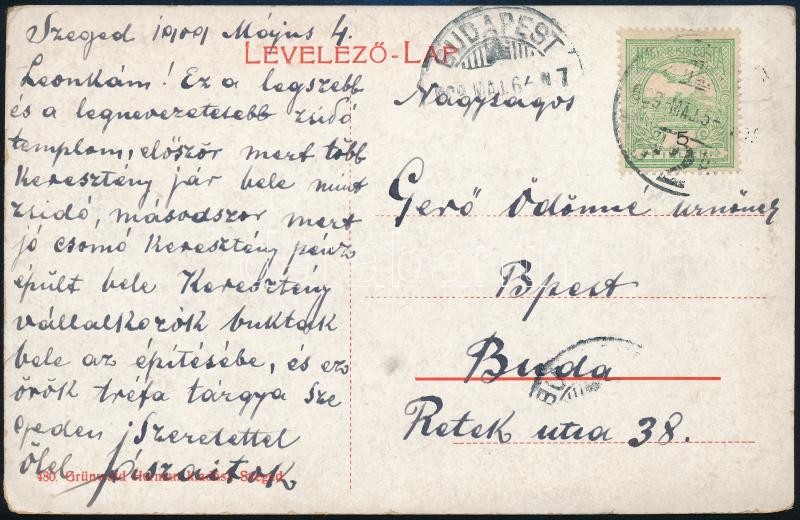 Szeged 1909 Május 4.
LEVELEZŐ-LAP
Leonkám! Ez a legszebb
és a legnevezetesebb zsidó
templom, először mert több
Keresztény jár bele mint
zsidó, másodszor mert
jó csomó Keresztény penz
épült bele Keresztény
vállalkozók buktak
bele az építésébe, és ez
örök tréfa tárgya Sze
geden, Szeretettel
ölel
480. Grünwald Herman kiadása Szeged
BUDAPEST
909 MAJ. 6 N7
MAGYAR KIR. POSTA
5
Nagyságos
Gerő Ödönné urnőnek
Bpest
Buda
Retek utca 38.
darabanth